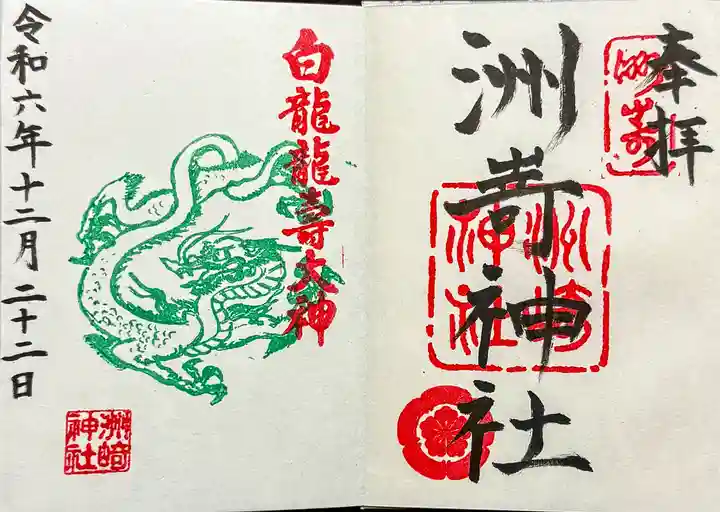 奉拝
洲嵜神社
洲嵜
洲崎神社
白龍龍寿大神
令和六年十二月二十二日
洲崎神社